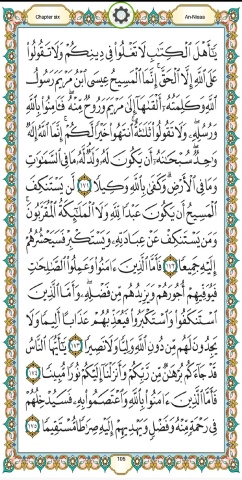 Chapter six
An-Nisaa
يَـٰٓأَهْلَ ٱلْكِتَـٰبِ لَا تَغْلُوا۟ فِى دِينِكُمْ وَلَا تَقُولُوا۟
عَلَى ٱللَّهِ إِلَّا ٱلْحَقَّ ۚ إِنَّمَا ٱلْمَسِيحُ عِيسَى ٱبْنُ مَرْيَمَ رَسُولُ
ٱللَّهِ وَكَلِمَتُهُۥٓ أَلْقَىٰهَآ إِلَىٰ مَرْيَمَ وَرُوحٌ مِّنْهُ ۖ فَـَٔامِنُوا۟ بِٱللَّهِ
وَرُسُلِهِۦ ۖ وَلَا تَقُولُوا۟ ثَلَـٰثَةٌ ۚ ٱنتَهُوا۟ خَيْرًا لَّكُمْ ۚ إِنَّمَا ٱللَّهُ إِلَـٰهٌ
وَٰحِدٌ ۖ سُبْحَـٰنَهُۥٓ أَن يَكُونَ لَهُۥ وَلَدٌ ۘ لَّهُۥ مَا فِى ٱلسَّمَـٰوَٰتِ
وَمَا فِى ٱلْأَرْضِ ۗ وَكَفَىٰ بِٱللَّهِ وَكِيلًا ١٧١ لَّن يَسْتَنكِفَ
ٱلْمَسِيحُ أَن يَكُونَ عَبْدًا لِّلَّهِ وَلَا ٱلْمَلَـٰٓئِكَةُ ٱلْمُقَرَّبُونَ ۚ
وَمَن يَسْتَنكِفْ عَنْ عِبَادَتِهِۦ وَيَسْتَكْبِرْ فَسَيَحْشُرُهُمْ
إِلَيْهِ جَمِيعًا ١٧٢ فَأَمَّا ٱلَّذِينَ ءَامَنُوا۟ وَعَمِلُوا۟ ٱلصَّـٰلِحَـٰتِ
فَيُوَفِّيهِمْ أُجُورَهُمْ وَيَزِيدُهُم مِّن فَضْلِهِۦ ۖ وَأَمَّا ٱلَّذِينَ
ٱسْتَنكَفُوا۟ وَٱسْتَكْبَرُوا۟ فَيُعَذِّبُهُمْ عَذَابًا أَلِيمًا وَلَا
يَجِدُونَ لَهُم مِّن دُونِ ٱللَّهِ وَلِيًّا وَلَا نَصِيرًا ١٧٣ يَـٰٓأَيُّهَا ٱلنَّاسُ
قَدْ جَآءَكُم بُرْهَـٰنٌ مِّن رَّبِّكُمْ وَأَنزَلْنَآ إِلَيْكُمْ نُورًا مُّبِينًا ١٧٤
فَأَمَّا ٱلَّذِينَ ءَامَنُوا۟ بِٱللَّهِ وَٱعْتَصَمُوا۟ بِهِۦ فَسَيُدْخِلُهُمْ
فِى رَحْمَةٍ مِّنْهُ وَفَضْلٍ وَيَهْدِيهِمْ إِلَيْهِ صِرَٰطًا مُّسْتَقِيمًا ١٧٥
105